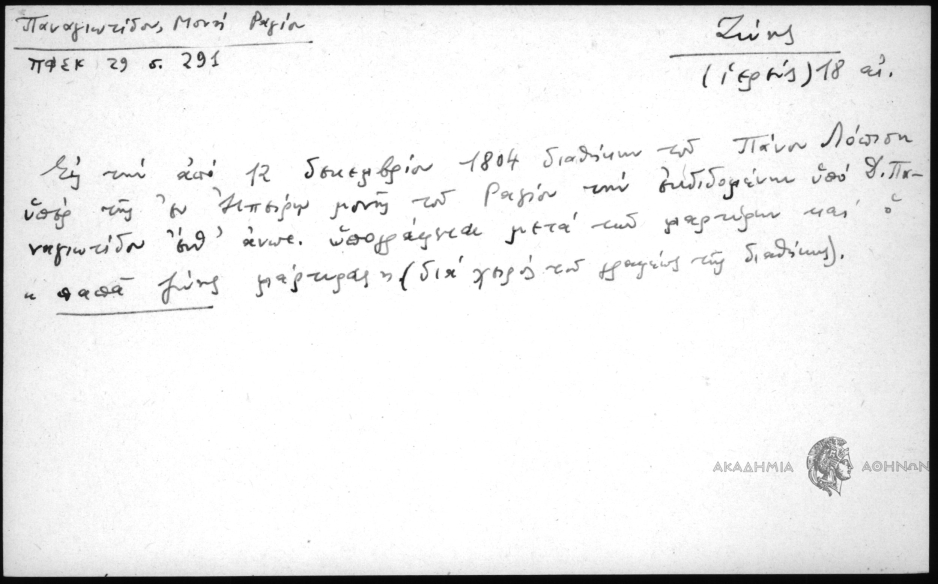 Παναγιωτίδου, Μονή Ραγίου
ΠΦΣΚ 29 σ. 291
Ζώης
(ἱερεύς) 18 αἰ.
Εἰς τήν ἀπό 12 δεκεμβρίου 1804 διαθήκην τοῦ Πάνου Λόπιση
ὑπέρ τῆς ἐν Ἠπείρῳ μονῆς τοῦ Ραγίου τήν ἐκδιδομένην ὑπό Δ. Πα-
ναγιωτίδου ἔνθ' ἀνωτ. ὑπογράφεται μετά τῶν μαρτύρων καί ὁ
" παπᾶ ζώης μάρτυρας " (διά χειρός τοῦ γραφέως τῆς διαθήκης).
ΑΚΑΔΗΜΙΑ ΑΘΗΝΩΝ